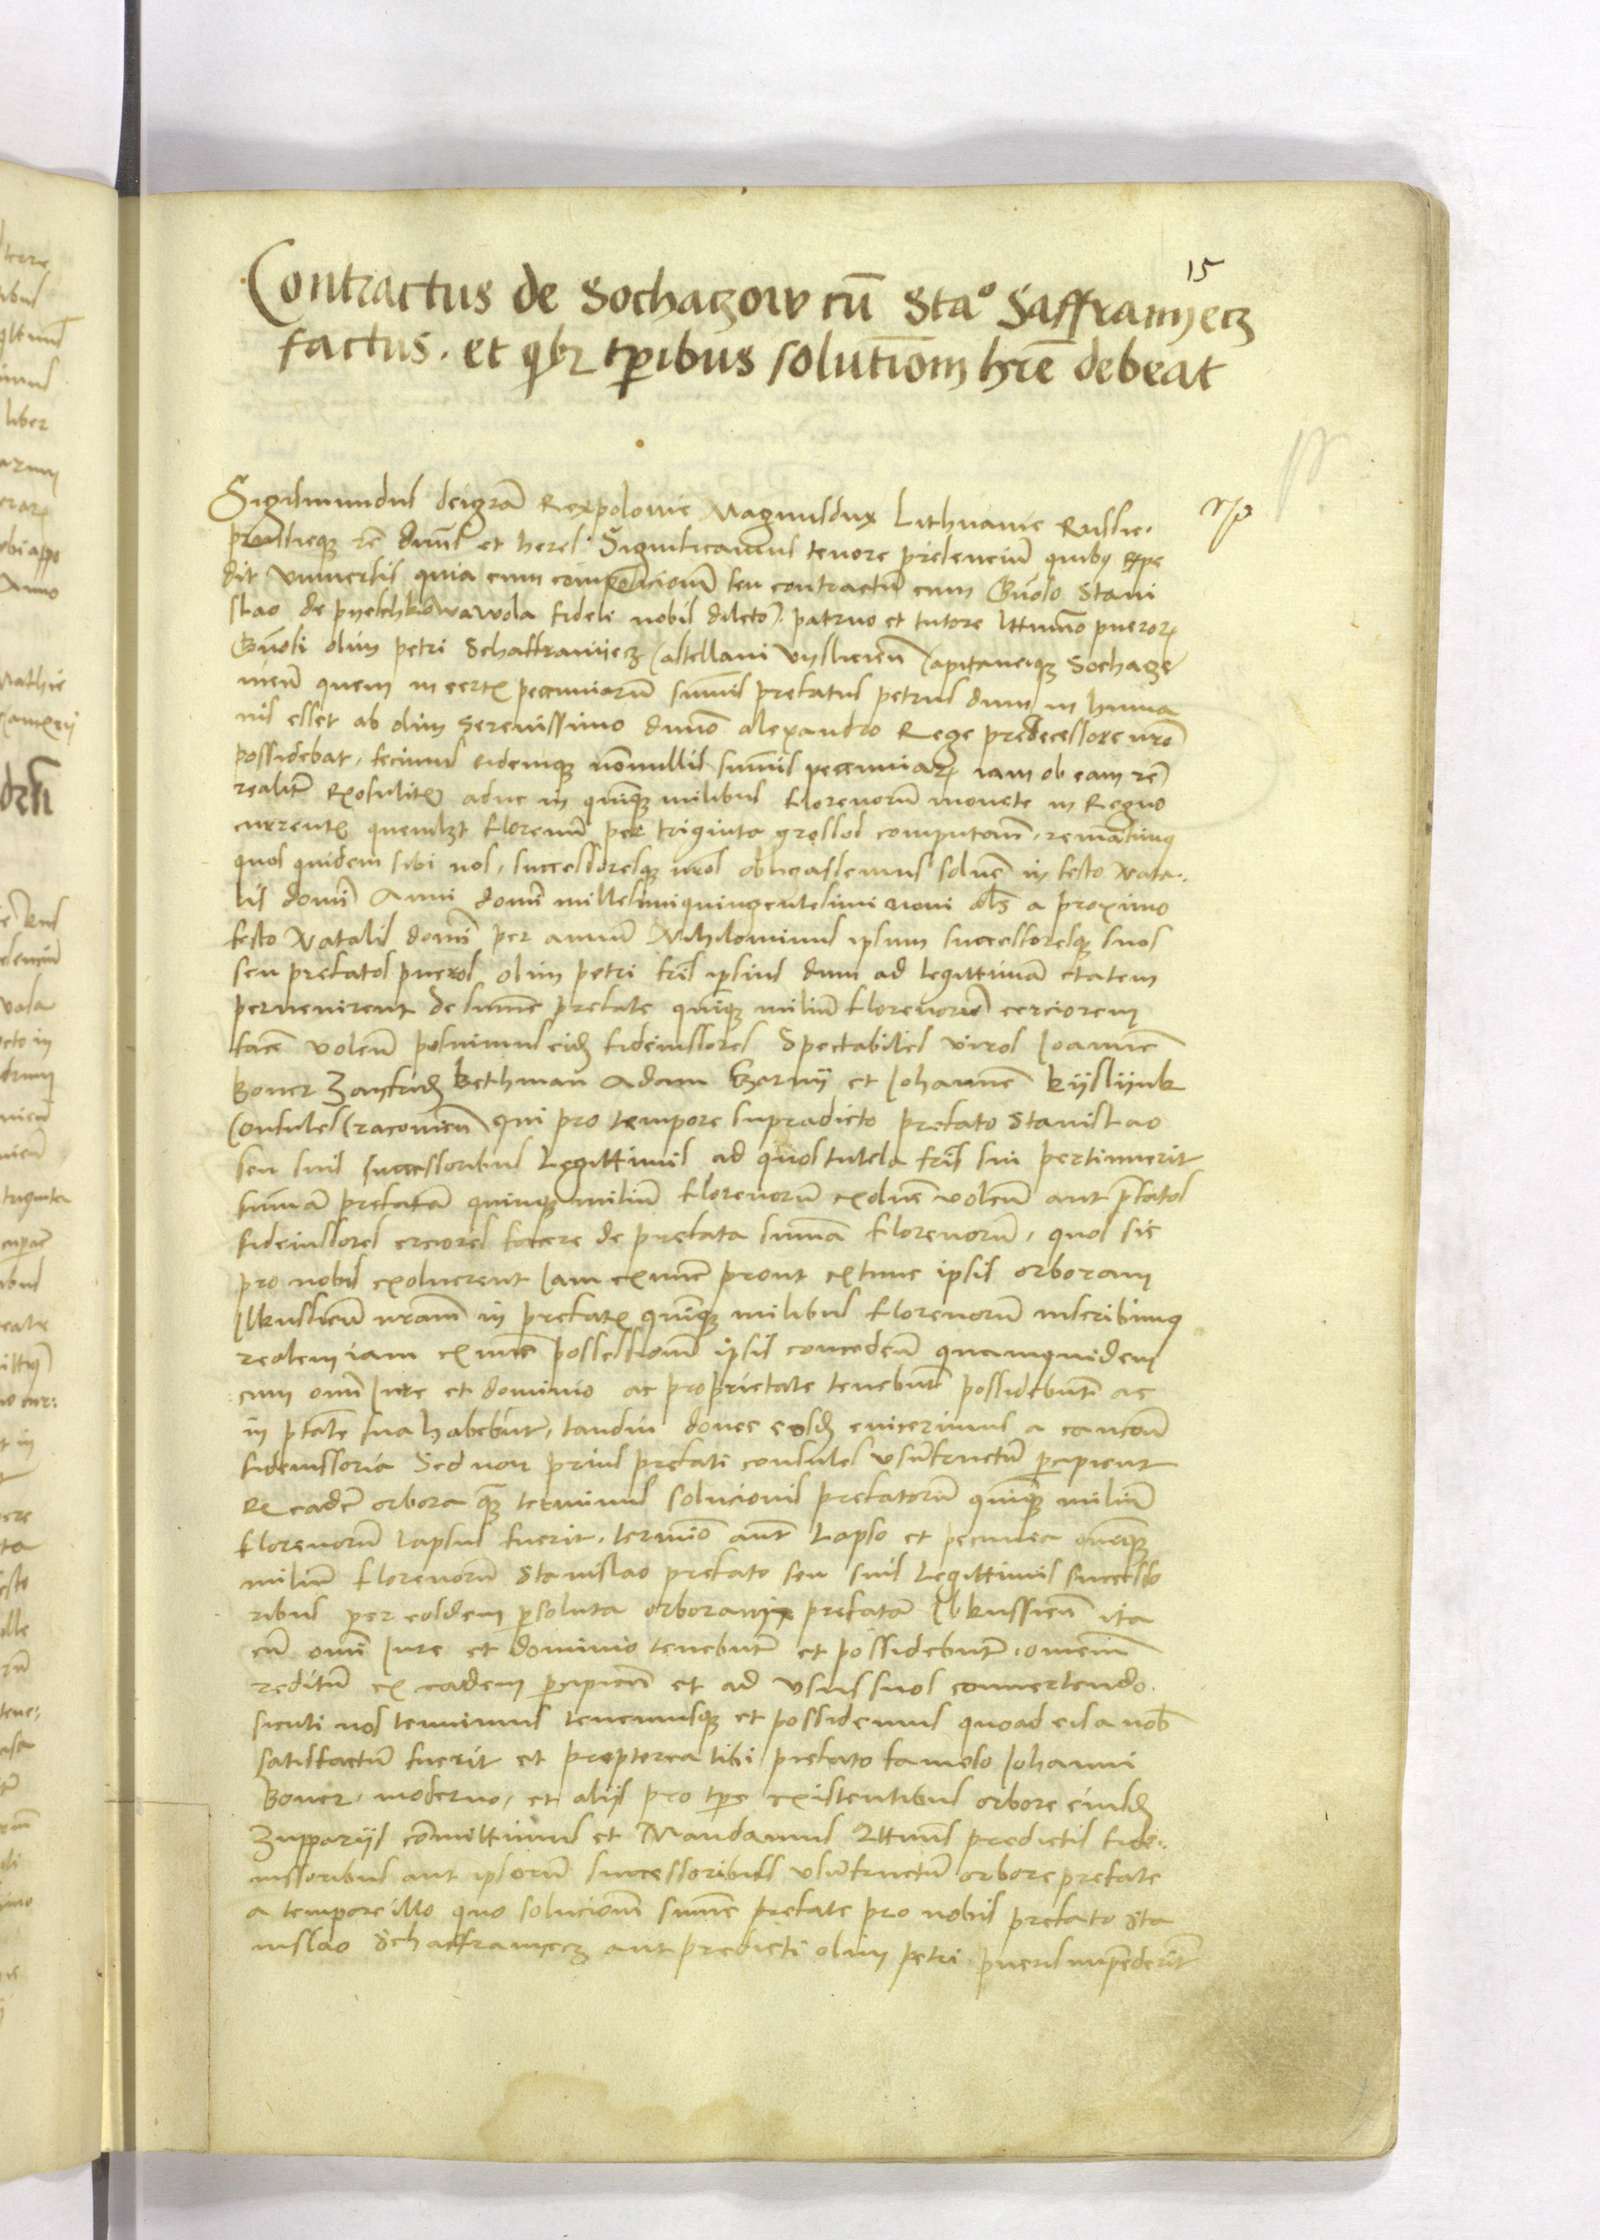 15
Contractus de Sochaczow cū Stao Saffranyecz
factus. et qbz tꝑibus solutiom hre debeat
Sigismundus dei gra Rex polonie Magnus dux Lithuanie Russie.
prussieqz etc dnus et heres. Significamus tenore presenciu quibus expe
dit Universis quia cum composicionem seu contractum cum Gnoso Stani
slao de pyeschkowa wola fideli nobis dilecto. patruo et tutore ltimo pueroru
Gnosi olim petri Schaffranyecz Castellani Vyslicien Capitaneiqz Sochacze
vien quem in certis pecuniaru sumis prefatus petrus dum in huma
nis esset ab olim Serenissimo dno alexandro Rege predecessore nro
possidebat. fecimus eidemqz nonnullis sumis pecuniaru iam ob eam rem
realiter exolutis aduc in quinqz milibus florenoru monete in Regno
currentis quemlibet florenu per triginta grossos computan. remansimus
quos quidem sibi nos. successoresqz nros obligassemus solvere in festo Nata.
lis domini Anni domini millesimi quingentesimi noni als a proximo
festo Natalis domini per annum Nihilominus ipsum successoresqz suos
seu prefatos pueros olim petri fris ipsius dum ad legittimam etatem
pervenirent de summe prefate quinqz miliu florenoru cerciorem
facere volen posuimus eidem fideiussores Spectabiles viros Joannem
Boner Zayfrid Bethman Adam Czarny et Johannem Kyslynk
Consules Cracovien Qui pro tempore supradicto prefato Stanislao
seu suis successoribus Legittimis ad quos tutela fris sui pertinuerit
sumam prefatam quinqz miliu florenoru exolvere volen aut pfatos
fideiussores cerciores facere de prefata suma florenoru. quos sic
pro nobis exoluerent Jam ex nunc prout ex tunc ipsis orboram
Ilkussien nram in prefatis quinqz milibus florenoru inscribimus
realem iam ex nunc possessionem ipsis conceden quamquidem
cum omni Jure et dominio ac proprietate tenebunt possidebunt ac
in ptate sua habebunt. tandiu donec eosdem eviceximus a caucon
fideiussoria Sed non prius prefati consules usumfructum percipient
ex eadem orbora quam terminus solucionis prefatorum quinqz miliu
florenoru lapsus fuerit. termino aut Lapso et pecunia quinqz
miliu florenoru Stanislao prefato seu suis Legittimis successo
ribus per eosdem persoluta orboram prefatam Ilkussien ita
cu omni Jure et dominio tenebunt et possidebunt omnem
reditum ex eadem percipien et ad usus suos convertendo.
sicuti nos tenuimus tenemusqz et possidemus quoad eis a nobis
satisfactum fuerit et propterea tibi prefato famoso Johanni
Boner. moderno. et aliis pro tpe existentibus orbore eiusdem
Zuppariis committimus et Mandamus Qttinus predictis fide.
iussoribus aut ipsorum successoribus usumfructum orbore prefate
a tempore illo quo solucionem summe prefate pro nobis prefato Sta
nislao Schaffranyecz aut predicti olim petri pueris impenderint